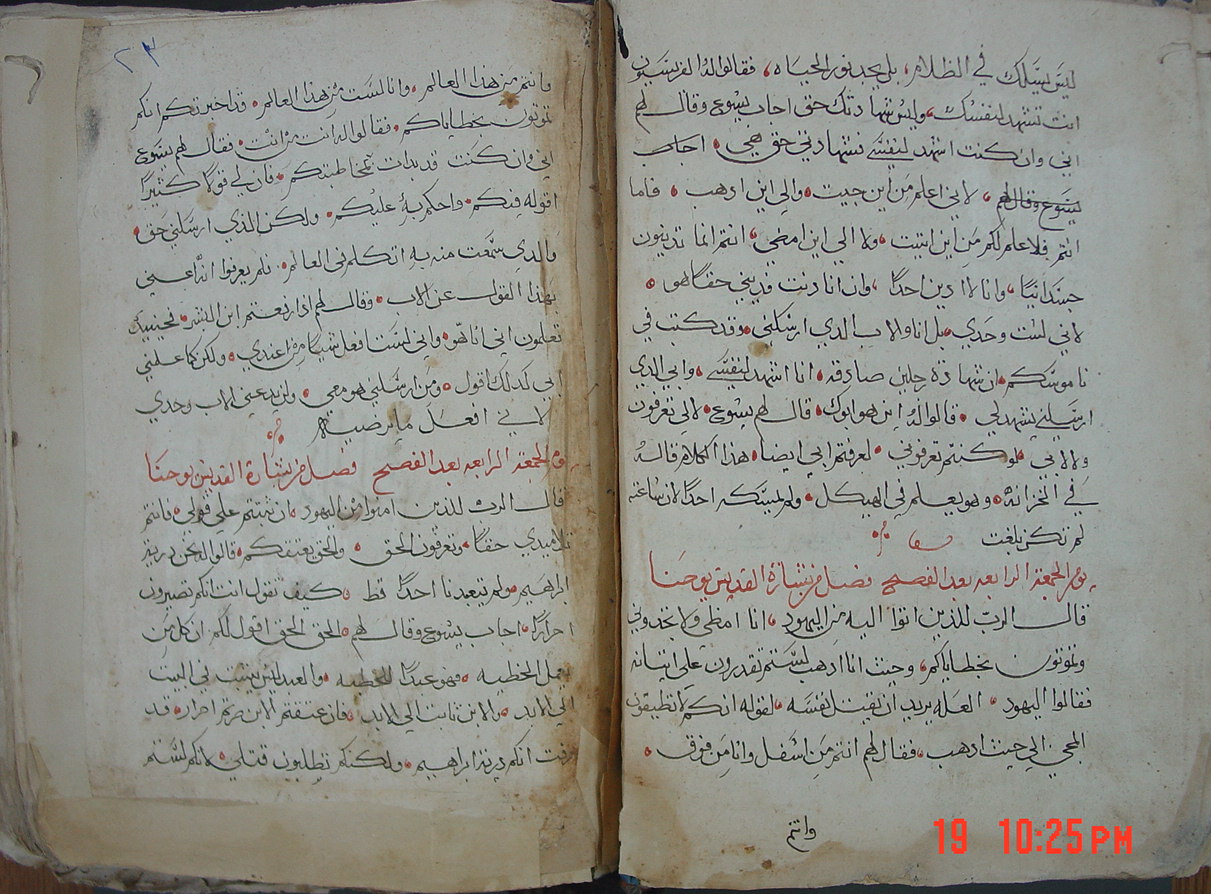 ليس يسلك في الظلام، بل يجد نور الحياه، فقالوا له الفريسيون
انت تشهد لنفسك، وليس شهادتك حق، اجاب يسوع وقال لهم
اني وان كنت اشهد لنفسي فشهادتي حق هي، اجاب
يسوع وقال لهم، لاني اعلم من اين جيت، والي اين ادهب، فاما
انتم فلا علم لكم من اين اتيت، ولا الي اين امضي، انتم انما تدينون
جسدانيًا، وانا لا ادين احدًا، وان انا دنت فديني حقًا هو،
لاني لست وحدي، بل انا والاب الدي ارسلني، وقد كتب في
ناموسكم، ان شهادة رجلين صادقه، انا اشهد لنفسي، وابي الدي
ارسلني يشهد لي، قالوا له اين هو ابوك، قال لهم يسوع، لا لي تعرفون
ولا لابي، لو كنتم تعرفوني، لعرفتم ابي ايضا، هذا الكلام قاله
في الخزانه، وهو يعلم في الهيكل، ولم يمسكه احدًا لان ساعته
لم تكن بلغت
يوم الجمعه الرابعه بعد الفصح فصل من بشارة القديس يوحنا
قال الرب للذين اتوا اليه من اليهود، انا امظي ولا تجدوني
وتموتون بخطاياكم، وحيث انا ادهب لستم تقدرون علي اتيانه
فقالوا اليهود، العله يريد ان يقتل نفسه، لقوله انكم لا تطيقون
المجي الي حيث ادهب، فقال لهم انتم من اسفل وانا من فوق،
وانتم
٢٣
وانتم من هذا العالم، وانا لست من هذا العالم، قد اخبرتكم انكم
تموتون بخطاياكم، فقالوا له انت من انت، فقال لهم يسوع
اني وان كنت قد بدات مخاطبتكم، فان لي قولًا كثيرًا
اقوله فيكم، واحكم به عليكم، ولكن الذي ارسلني حق،
والدي سمعت منه به اتكلم في العالم، فلم يعرفوا انه عني
بهذا القول عن الاب، وقال لهم اذا رفعتم ابن البشر، فحينيد
تعلمون اني انا هو، واني لست افعل شيًا من عندي، ولكن كما علمني
ابي كدلك اقول، ومن ارسلني هو معي، ولم يدعني الاب وحدي
لاني افعل ما يرضيه
يوم الجمعه الرابعه بعد الفصح فصل من بشارة القديس يوحنا
قال الرب للذين امنوا من اليهود، ان ثبتتم علي قولي، فانتم
تلاميدي حقًا، وتعرفون الحق، والحق يعتقكم، قالوا له نحن درية
ابراهيم، ولم تتعبدنا احدًا قط، كيف تقول انت انكم تصيرون
احرارًا، اجاب يسوع وقال لهم، الحق الحق اقول لكم ان كل من
يعمل الخطيه، فهو عبدًا للخطيه، والعبد ليس يثبت في البيت
الي الابد، والابن ثابت الي الابد، فان عتقتم الابن صرتم احرار، قد
عرفت انكم درية ابراهيم، ولكنكم تطلبون قتلي، لانكم لستم